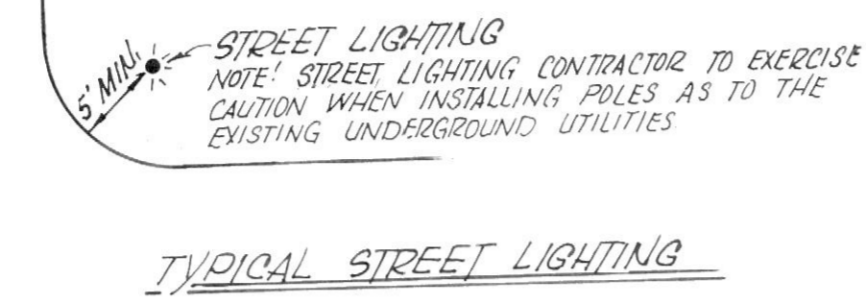 5' MIN.
STREET LIGHTING
NOTE! STREET LIGHTING CONTRACTOR TO EXERCISE
CAUTION WHEN INSTALLING POLES AS TO THE
EXISTING UNDERGROUND UTILITIES
TYPICAL STREET LIGHTING